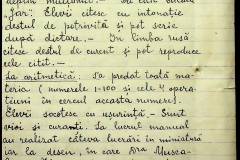 depun muncitorii. De care sunt
"Iar: Elevii citesc cu intonație
destul de potrivită și pot scrie
după dictare. - În limba rusă
citesc destul de curent și pot reproduce
cele citit. -
La aritmetică: S'a predat toată ma-
teria (numerele 1-100 și cele 4 opera-
țiuni în cercul acesta numeric).
Elevii socotesc cu ușurință - Sunt
vioi și curanți. La lucrul manual
au realizat câteva lucrări în miniatură
iar la desen, în care D-ra Musca-